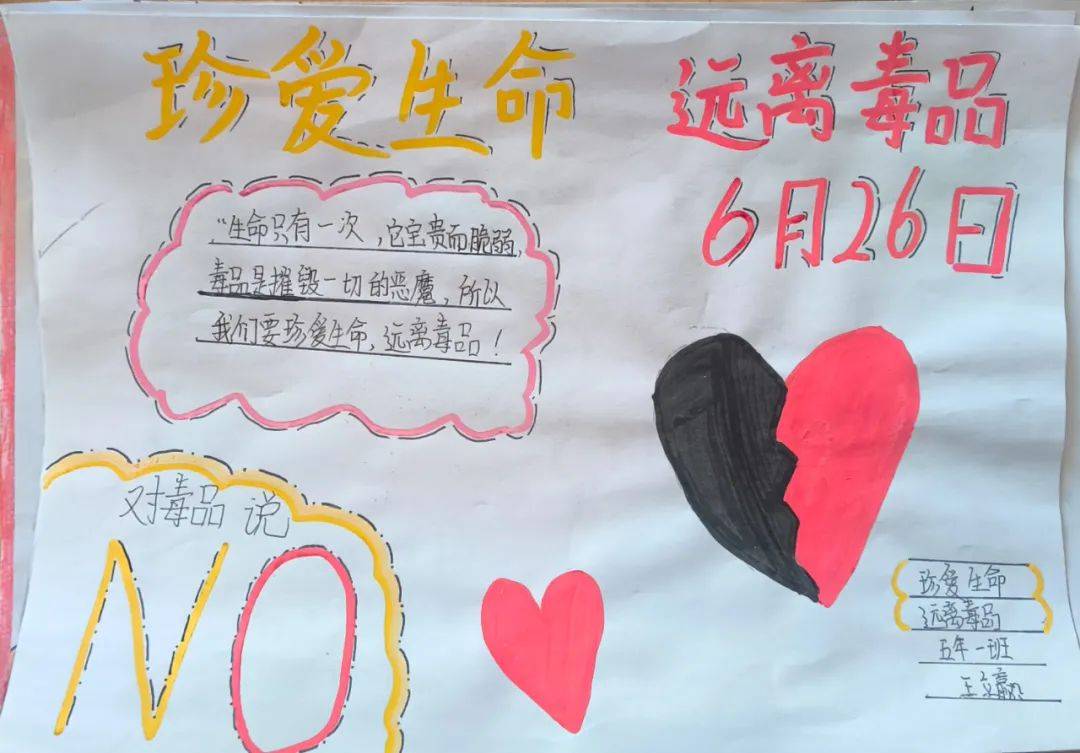 珍爱生命 远离毒品
6月26日
“生命只有一次，它宝贵而脆弱，
毒品是摧毁一切的恶魔，所以
我们要珍爱生命，远离毒品！
对毒品说
NO
珍爱生命
远离毒品
五年一班
王